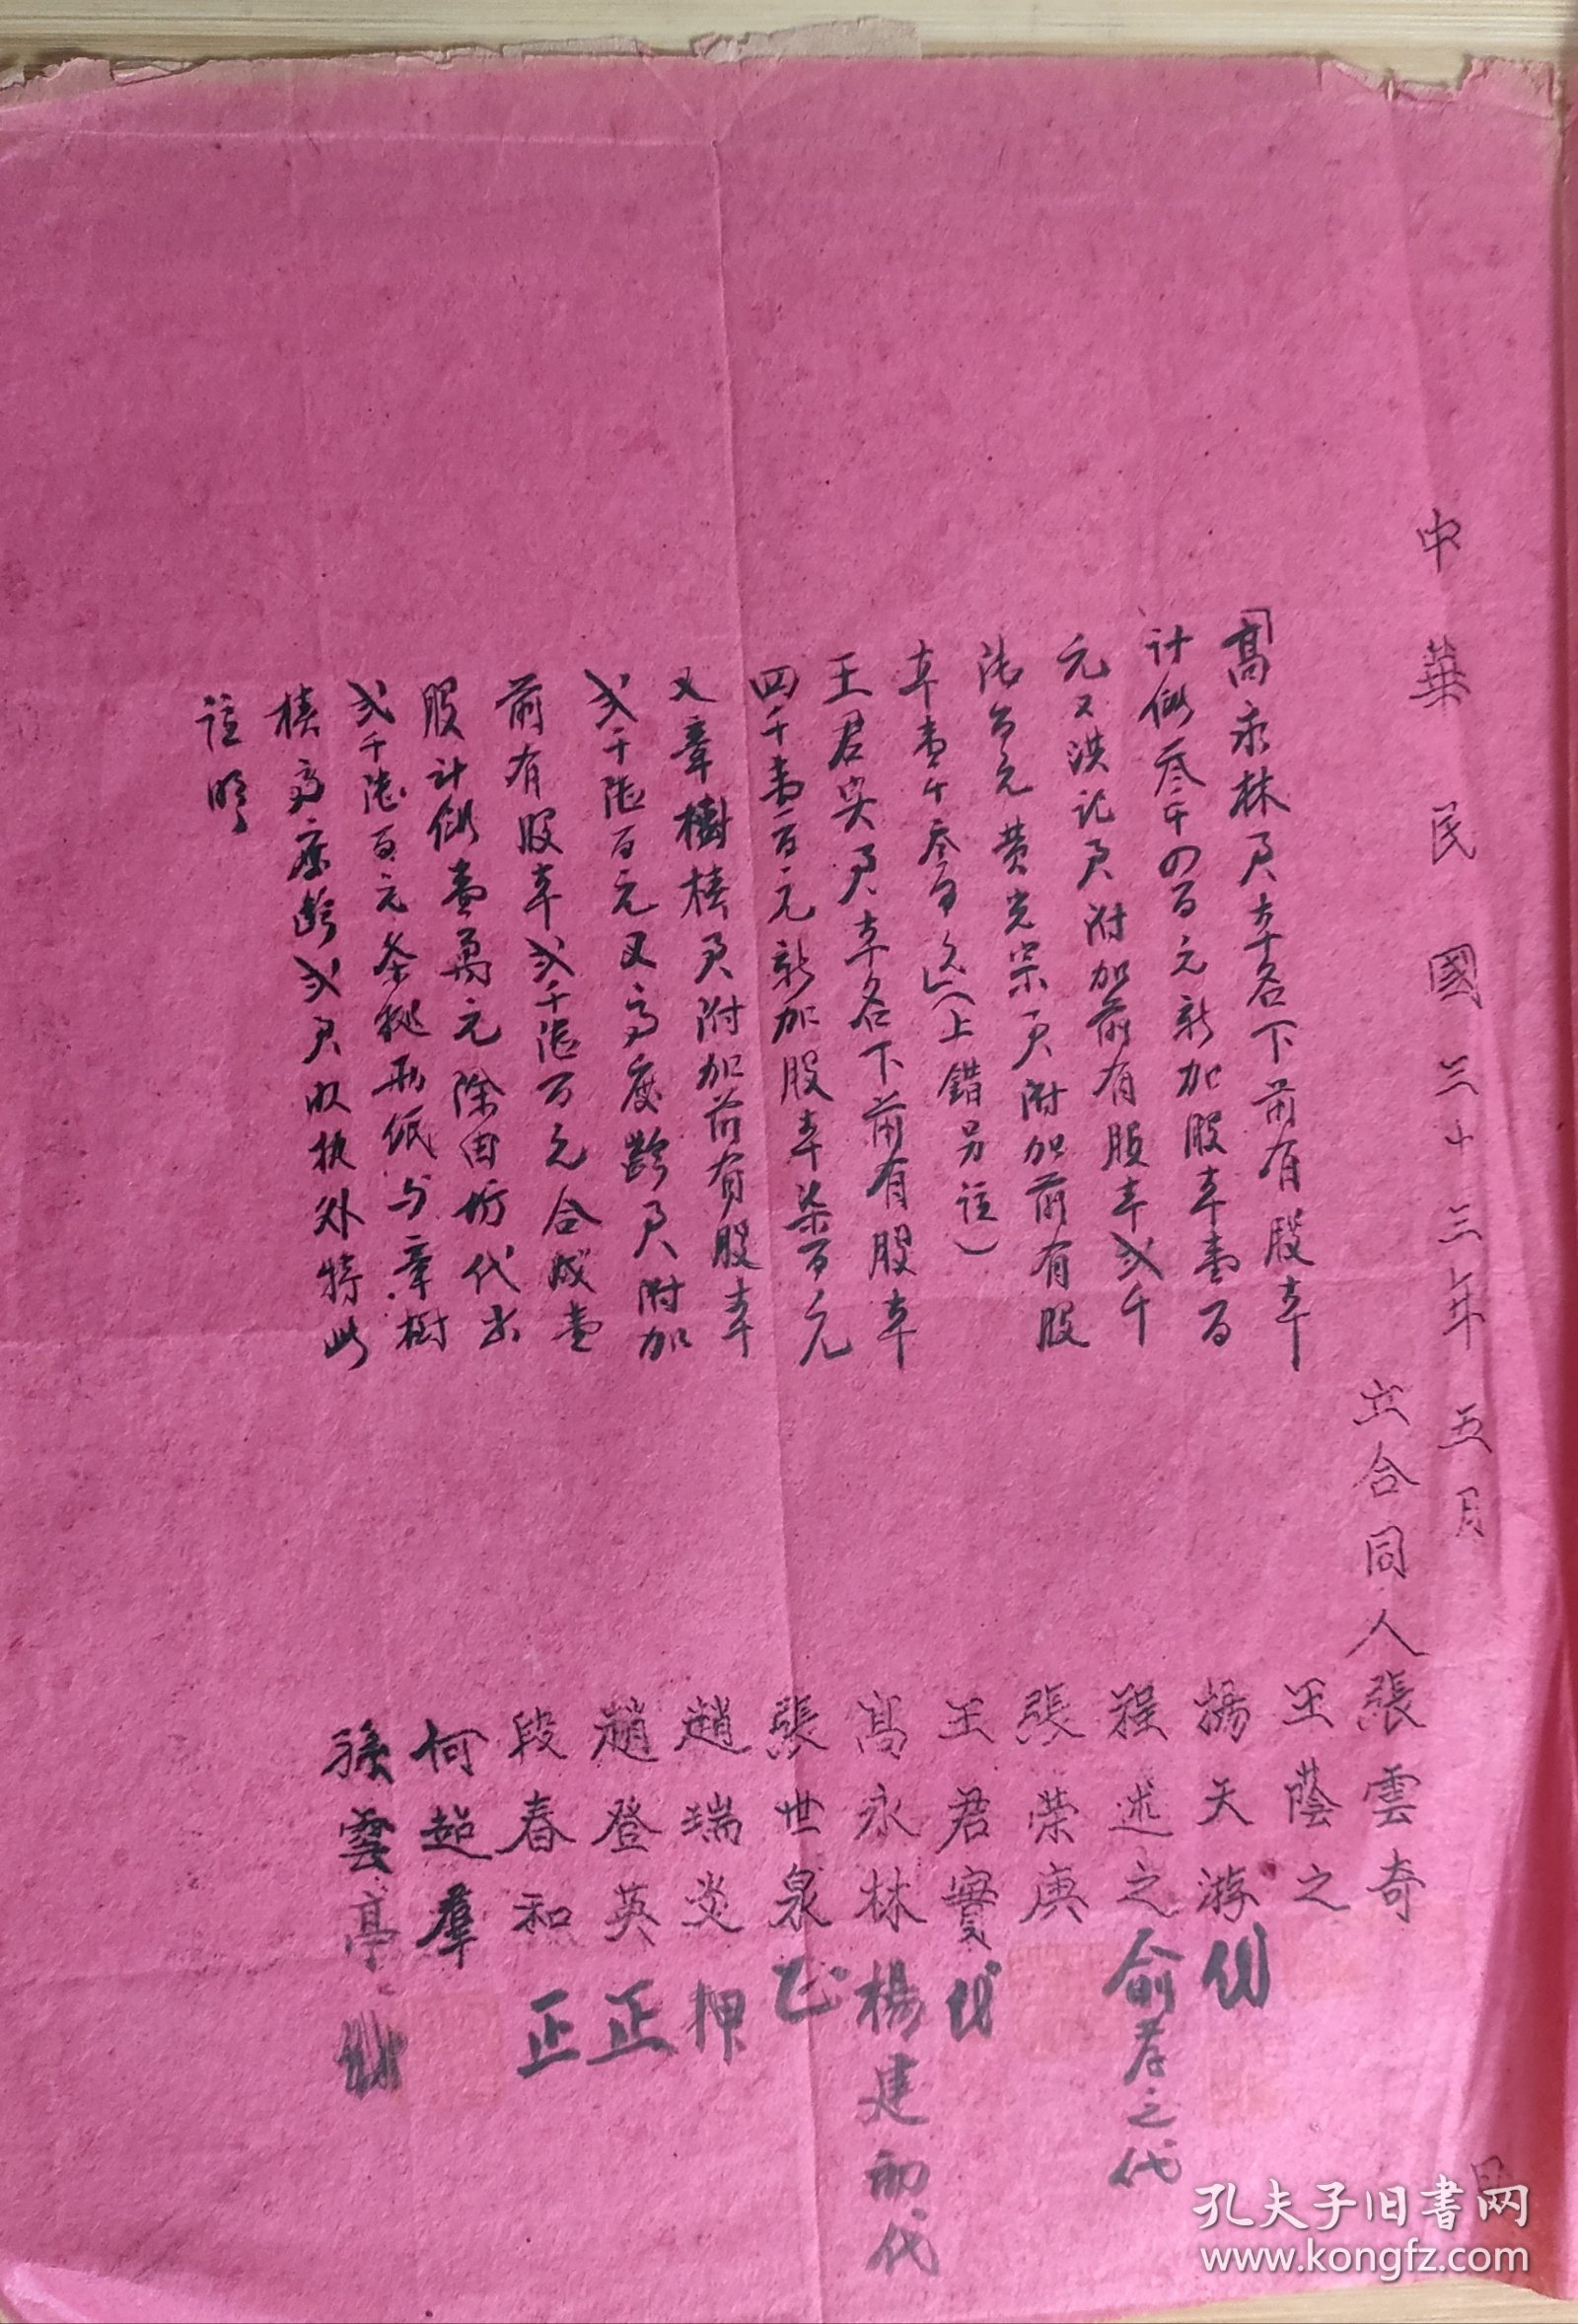 中華民國三十三年五月 日
立合同人張雲奇
王蔭之
楊天游 代
程述之 俞孝之代
張榮庚
王君實 代
高永林 楊建初代
張世泉
趙瑞炎 押
趙登英 正
段春和 正
何超羣
孫雲亭
「高永林員本名下前有股本
計僞叁千四百元新加股本壹百
元又洪記員附加前有股本弍千
陆百元黄光宗員附加前有股
本壹千叁百元」(上錯另註)
王君实員本名下前有股本
四千壹百元新加股本柒百元
又章樹椿員附加前有股本
弍千陆百元又高慶齡員附加
前有股本弍千陆百元合成壹
股計僞壹萬元除由坊代出
弍千陆百元条據兩紙与章樹
椿高慶齡弍員收执外特此
註明
孔夫子旧书网
www.kongfz.com